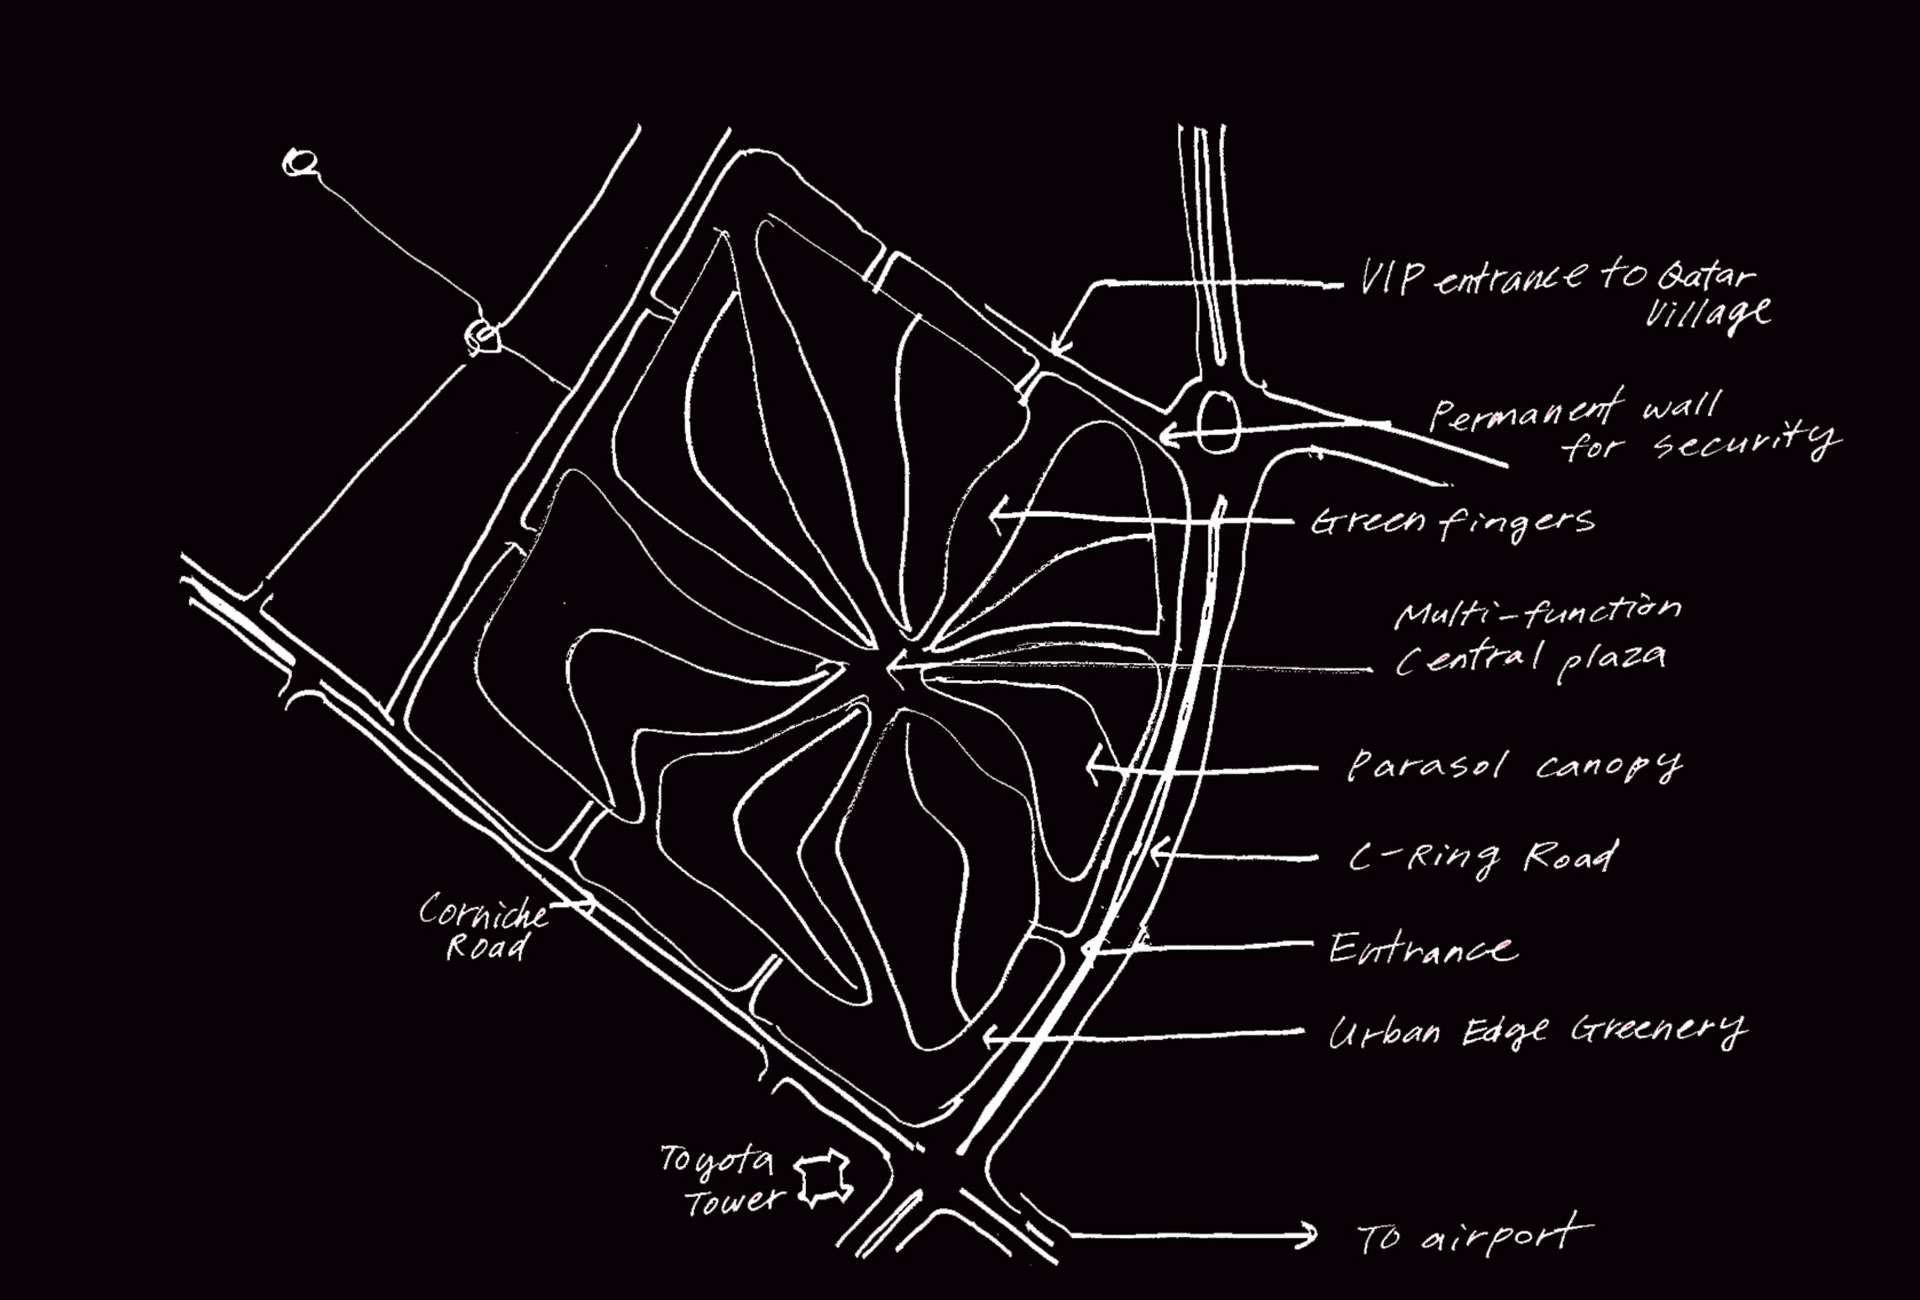 VIP entrance to Qatar
Village
Permanent wall
for security
Green fingers
Multi-function
Central plaza
Parasol canopy
C-Ring Road
Corniche
Road
Entrance
Urban Edge Greenery
Toyota
Tower
To airport